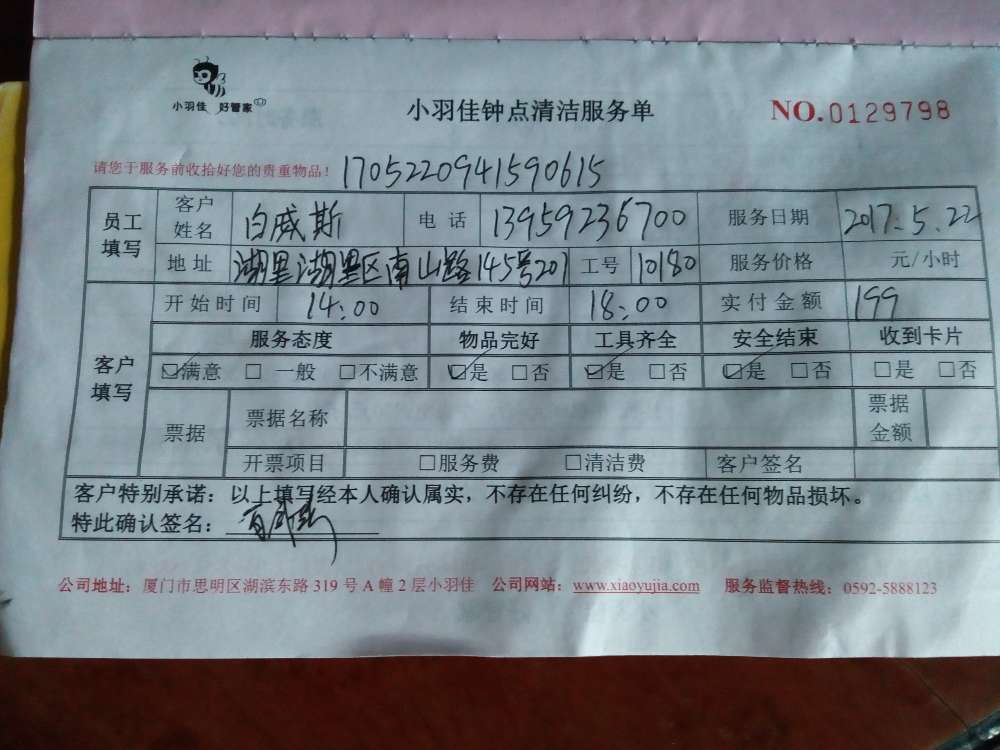 小羽佳 好管家
小羽佳钟点清洁服务单 NO.0129798
请您于服务前收拾好您的贵重物品! 1705220941590615
员工填写 客户姓名 白威斯 电话 13959236700 服务日期 2017.5.22
地址 湖里湖里区南山路145号201 工号 10180 服务价格 元/小时
客户填写 开始时间 14:00 结束时间 18:00 实付金额 199
服务态度 物品完好 工具齐全 安全结束 收到卡片
☑满意 □一般 □不满意 ☑是 □否 ☑是 □否 ☑是 □否 □是 □否
票据 票据名称 票据金额
开票项目 □服务费 □清洁费 客户签名
客户特别承诺:以上填写经本人确认属实,不存在任何纠纷,不存在任何物品损坏。
特此确认签名:白威斯
公司地址:厦门市思明区湖滨东路 319 号 A 幢 2 层小羽佳 公司网站:www.xiaoyujia.com 服务监督热线:0592-5888123